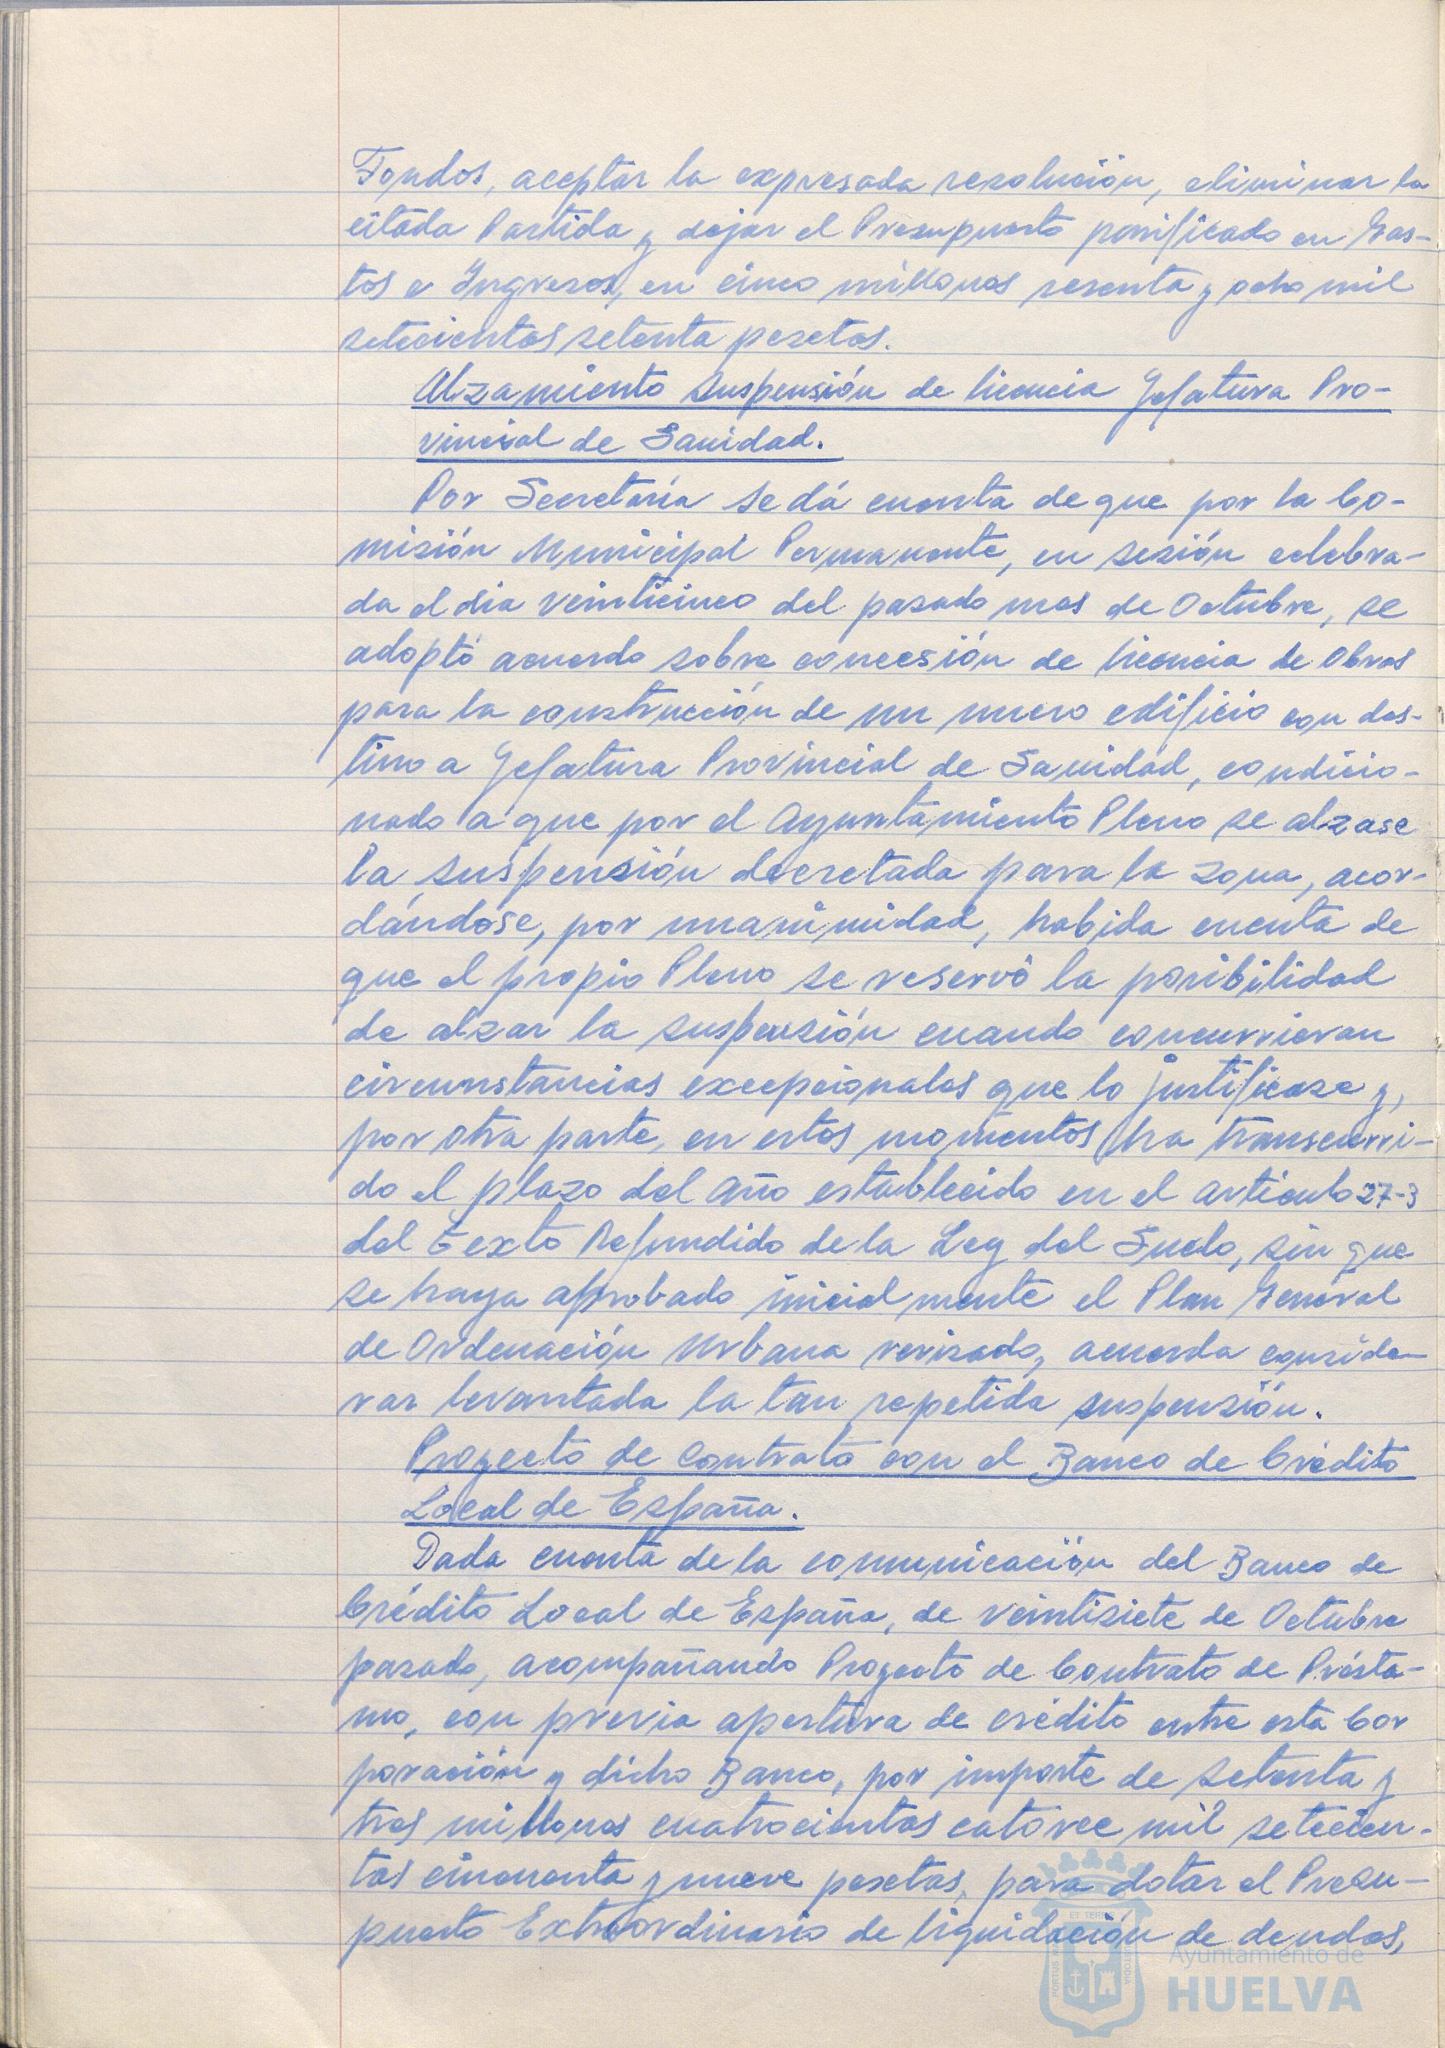 Fondos, aceptar la expresada resolución, eliminar la
citada Partida y dejar el Presupuesto ponificado en Gas-
tos e Ingresos, en cinco millones sesenta y ocho mil
setecientos setenta pesetas.
Alzamiento suspensión de licencia Jefatura Pro-
vincial de Sanidad.
Por Secretaría se dá cuenta de que por la Co-
misión Municipal Permanente, en sesión celebra-
da el dia veinticinco del pasado mes de Octubre, se
adoptó acuerdo sobre concesión de licencia de obras
para la construcción de un nuevo edificio con des-
tino a Jefatura Provincial de Sanidad, condicio-
nado a que por el Ayuntamiento Pleno se alzase
la suspensión decretada para la zona, acor-
dándose, por unanimidad, habida cuenta de
que el propio Pleno se reservó la posibilidad
de alzar la suspensión cuando concurrieran
circunstancias excepcionales que lo justificase y,
por otra parte, en estos momentos ha transcurri-
do el plazo del año establecido en el articulo 27-3
del Texto Refundido de la Ley del Suelo, sin que
se haya aprobado inicialmente el Plan General
de Ordenación Urbana revisado, acuerda conside-
rar levantada la tan repetida suspensión.
Proyecto de contrato con el Banco de Crédito
Local de España.
Dada cuenta de la comunicación del Banco de
Crédito Local de España, de veintisiete de Octubre
pasado, acompañando Proyecto de Contrato de Présta-
mo, con previa apertura de crédito entre esta Cor
poración y dicho Banco, por importe de setenta y
tres millones cuatrocientas catorce mil setecien-
tas cincuenta y nueve pesetas, para dotar el Presu-
puesto Extraordinario de liquidación de deudas,
Ayuntamiento de
HUELVA